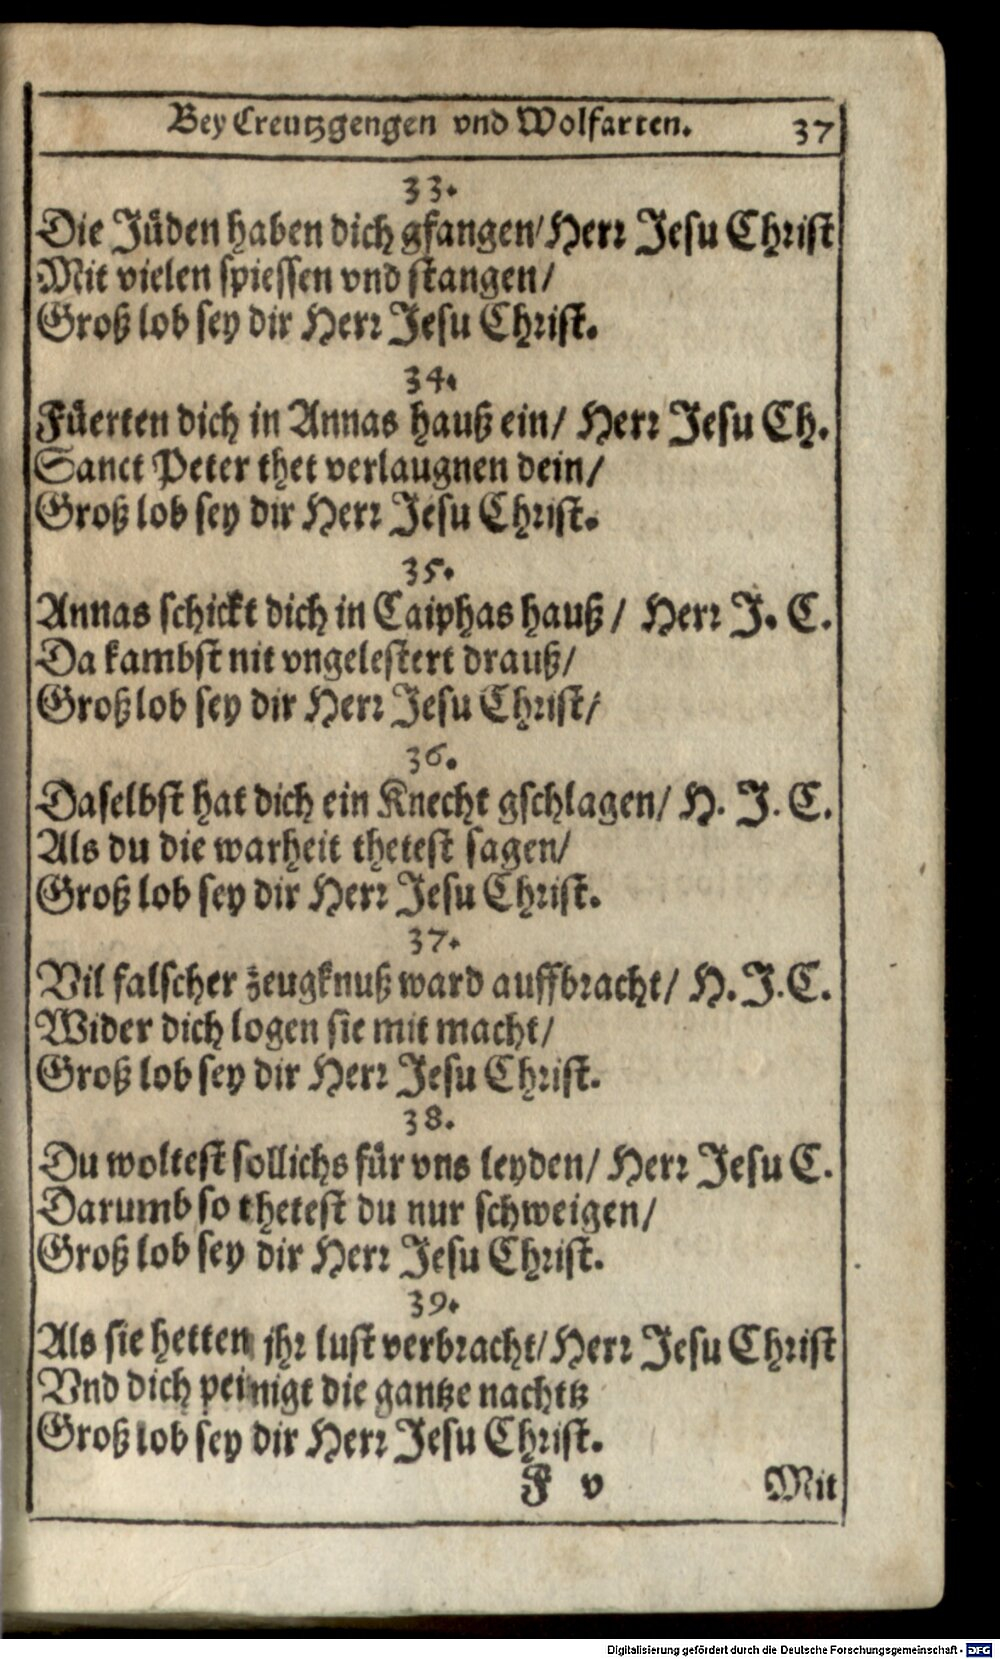 Bey Creutzgengen vnd Wolfarten. 37
33.
Die Jüden haben dich gfangen/ Herr Jesu Christ
Mit vielen spiessen vnd stangen/
Groß lob sey dir Herr Jesu Christ.
34.
Füerten dich in Annas hauß ein/ Herr Jesu Ch.
Sanct Peter thet verlaugnen dein/
Groß lob sey dir Herr Jesu Christ.
35.
Annas schickt dich in Caiphas hauß / Herr J. C.
Da kambst nit vngelestert drauß/
Groß lob sey dir Herr Jesu Christ/
36.
Daselbst hat dich ein Knecht gschlagen/ H. J. C.
Als du die warheit thetest sagen/
Groß lob sey dir Herr Jesu Christ.
37.
Vil falscher zeugknuß ward auffbracht/ H. J. C.
Wider dich logen sie mit macht/
Groß lob sey dir Herr Jesu Christ.
38.
Du woltest sollichs für vns leyden/ Herr Jesu C.
Darumb so thetest du nur schweigen/
Groß lob sey dir Herr Jesu Christ.
39.
Als sie hetten jhr lust verbracht/ Herr Jesu Christ
Vnd dich peinigt die gantze nachttz
Groß lob sey dir Herr Jesu Christ.
F v Mit
Digitalisierung gefördert durch die Deutsche Forschungsgemeinschaft - DFG